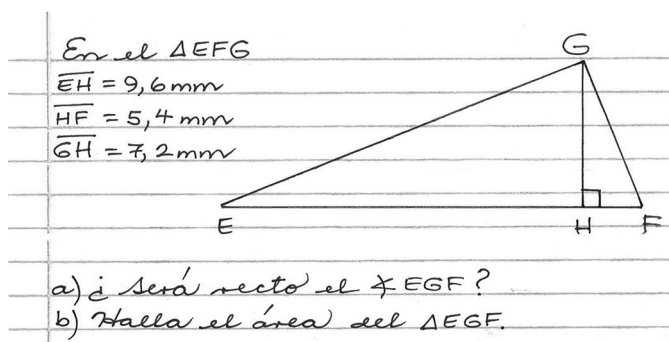 En el △EFG
EH = 9,6mm
HF = 5,4mm
GH = 7,2mm
G
E
H
F
a) ¿ Será recto el ∢ EGF?
b) Halla el área del △EGF.